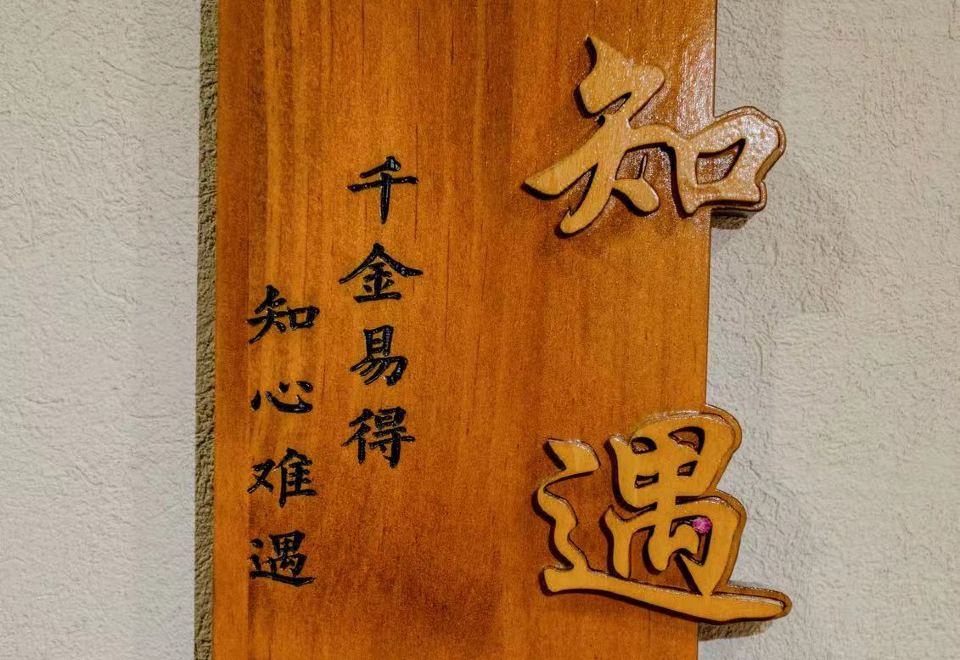 知遇
千金易得
知心难遇